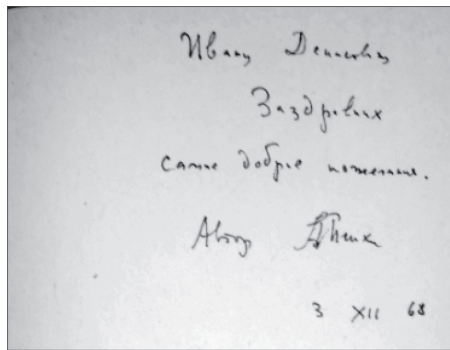 Ивану Денисовичу
самые добрые пожелания.
Автор
3 XII 68